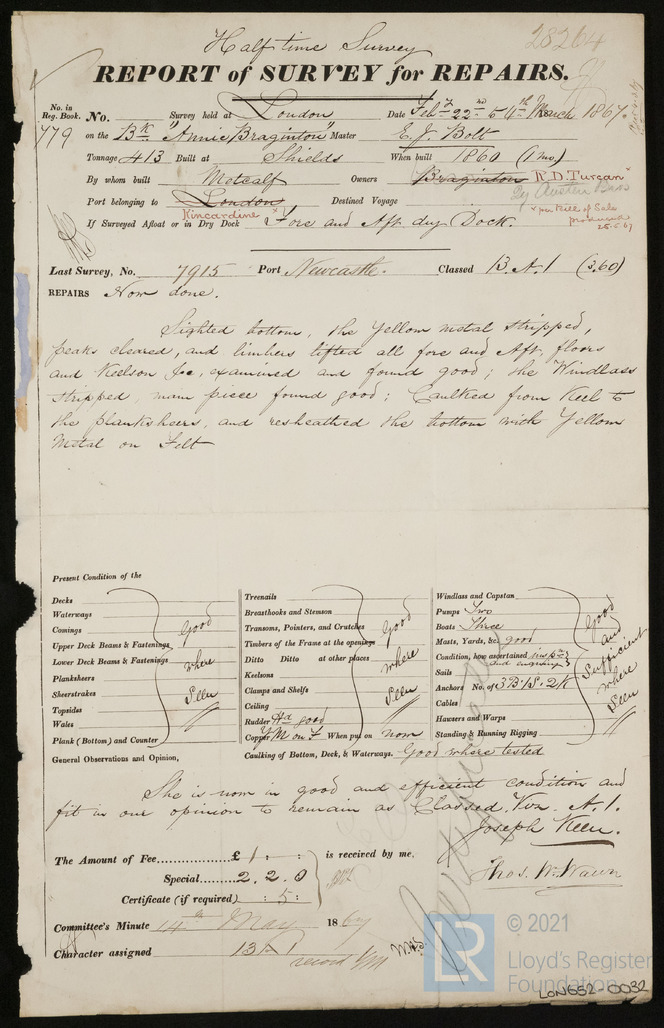 28264
Half time Survey
REPORT of SURVEY for REPAIRS.
No. in Reg. Book. No. Survey held at London Date Feby 22nd & 4th March 1867.
779 on the Bk "Annie Braginton" Master E. J. Bolt
Tonnage 413 Built at Shields When built 1860 (1 mo.)
By whom built Metcalf Owners Braginton R. D. Turcan x
Port belonging to London Destined Voyage
Kincardine
x per Bill of Sale produced 25.5.67
If Surveyed Afloat or in Dry Dock x Fore and Aft dry Dock.
Last Survey, No. 7915 Port Newcastle. Classed 13. A. 1 (3.60)
REPAIRS Now done.
Sighted bottom, the Yellow metal stripped,
peaks cleared, and limbers lifted all fore and Aft, floors
and Keelson &c, examined and found good; the Windlass
stripped, main piece found good; Caulked from Keel to
the planksheers, and resheathed the bottom with Yellow
Metal on Felt
Present Condition of the
Decks
Waterways
Comings
Upper Deck Beams & Fastenings
Lower Deck Beams & Fastenings
Planksheers
Sheerstrakes
Topsides
Wales
Plank (Bottom) and Counter
Good where Seen
Treenails
Breasthooks and Stemson
Transoms, Pointers, and Crutches
Timbers of the Frame at the openings
Ditto Ditto at other places
Keelsons
Clamps and Shelfs
Ceiling
Good where Seen
Rudder Hd good
Copper YM on F When put on now
Caulking of Bottom, Deck, & Waterways. Good where tested
Windlass and Capstan
Pumps Two
Boats Three
Masts, Yards, &c. good
Condition, how ascertained inspn and enquiry
Sails
Anchors No. of 3 B. 1 S. 2 K
Cables
Hawsers and Warps
Standing & Running Rigging
Good and Sufficient where Seen
General Observations and Opinion,
She is now in good and efficient condition and
fit in our opinion to remain as Classed. Viz. A. 1.
Joseph Keen.
Thos. W. Wawn
The Amount of Fee £ 1 : : is received by me,
Special 2. 2. 0
Certificate (if required) : 5 :
Committee's Minute 14th May 1867
Character assigned 13 A 1
record YM
LR
© 2021
Lloyd's Register
Foundation
LON652-0032